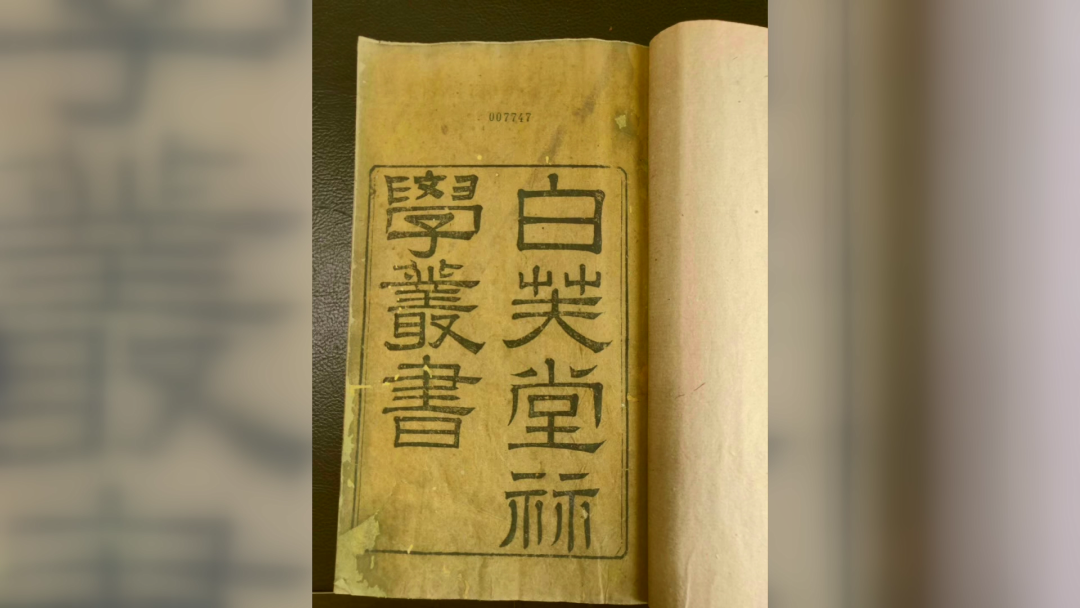 007747
白芙堂祘
學叢書